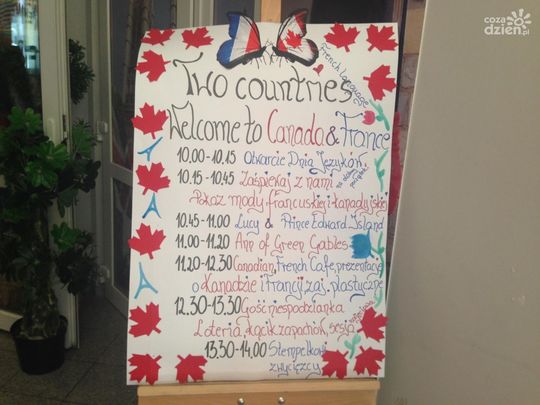 coza
dzien.pl
Two countries
French language
Welcome to Canada & France
10.00-10.15 Otwarcie Dnia Języków
10.15-10.45 Zaśpiewaj z nami
Pokaz mody francuskiej i kanadyjskiej
10.45-11.00 Lucy & Prince Edward Island
11.00-11.20 Ann of Green Gables
11.20-12.30 Canadian, French Cafe, prezentacje
o Kanadzie i Francji, zaj. plastyczne
12.30-13.30 Gość niespodzianka
Loteria, kącik zapachów, sesja
13.30-14.00 Stempelkowi
zwycięzcy